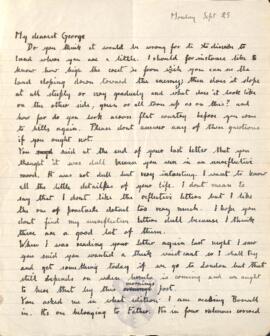 Monday Sept 25
My dearest George
Do you think it would be wrong for to to describe to
land where you are a little. I should for instance like to
know how high the crest is from which you are on the
land sloping down toward the enemy; then does it slope
at all steeply or very gradually and what does it look like
on the other side, yours or all torn up as on this? and
how far do you look across flat country before you come
to hills again. Please dont answer any of these questions
if you ought not.
You said at the end of your last letter that you
thought it was dull because you were in an unreflective
mood. It was not dull but very interesting. I want to know
all the little details of your life. I dont mean to
say that I don't like the reflective letters but I like
the one of particular details too very much. I hope you
dont find my unreflective letters dull because I think
there are a good lot of them.
When I was reading your letter again last night I saw
you said you wanted a thick waistcoat so I shall try
and get something today if we go to London but that
still depends on video is coming and we ought
to hear that by this morning post.
You asked me in what edition I am reading Boswell
in. Its on belonging to Father. Its in four volumes covered